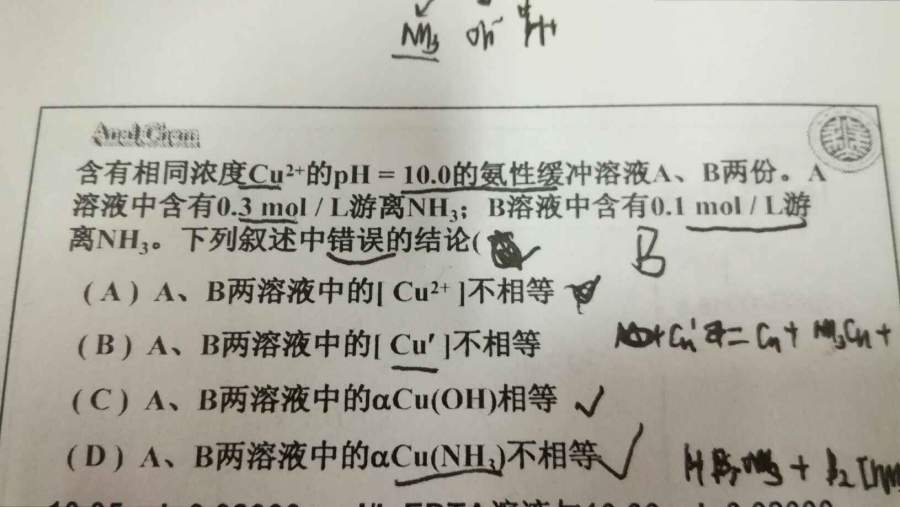 NH3 OH⁻ H+
Anal.Chem
含有相同浓度Cu²⁺的pH = 10.0的氨性缓冲溶液A、B两份。A
溶液中含有0.3 mol / L游离NH₃；B溶液中含有0.1 mol / L游
离NH₃。下列叙述中错误的结论(
B
(A) A、B两溶液中的[ Cu²⁺ ]不相等
(B) A、B两溶液中的[ Cu′ ]不相等
(C) A、B两溶液中的αCu(OH)相等 ✓
(D) A、B两溶液中的αCu(NH₃)不相等 ✓